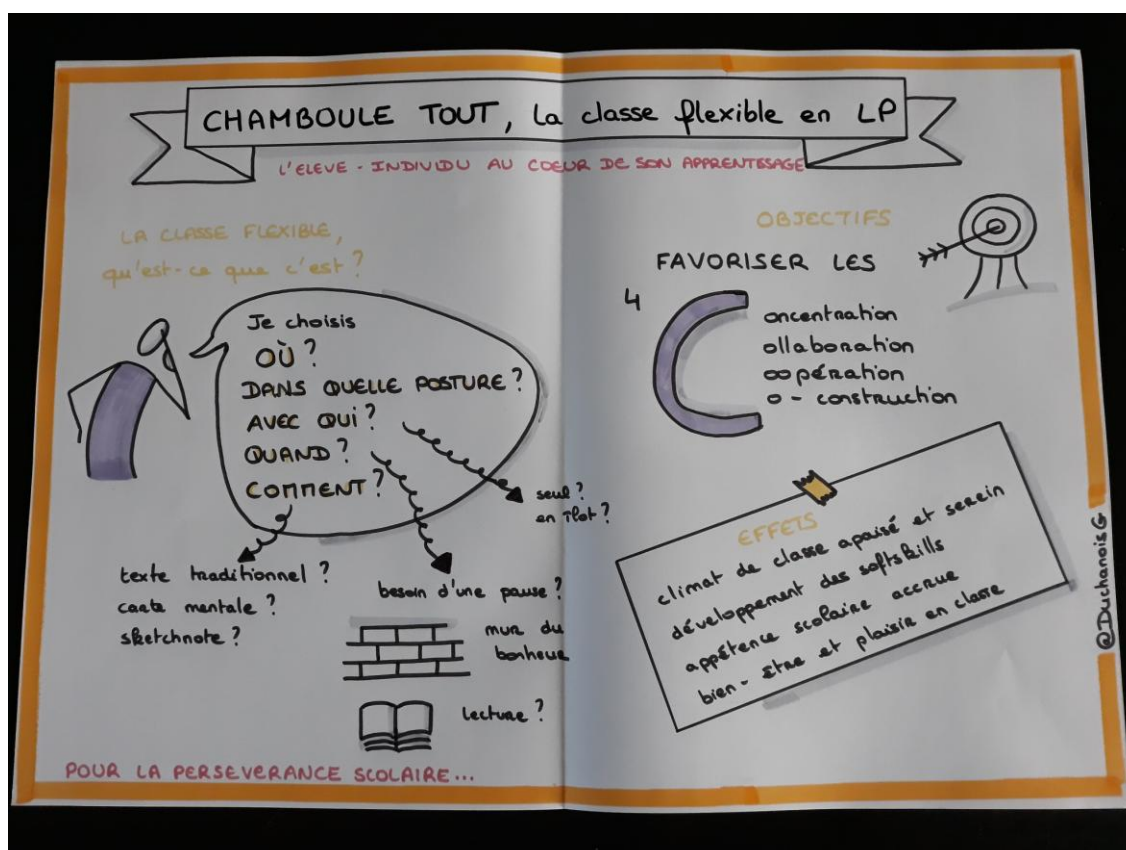 CHAMBOULE TOUT, la classe flexible en LP
L'ELEVE - INDIVIDU AU COEUR DE SON APPRENTISSAGE
LA CLASSE FLEXIBLE,
qu'est-ce que c'est ?
Je choisis
OÙ ?
DANS QUELLE POSTURE ?
AVEC QUI ?
QUAND ?
COMMENT ?
seul ?
en îlot ?
texte traditionnel ?
carte mentale ?
sketchnote ?
besoin d'une pause ?
mur du
bonheur
lecture ?
POUR LA PERSEVERANCE SCOLAIRE...
OBJECTIFS
FAVORISER LES
4 C
oncentration
ollaboration
oopération
o - construction
EFFETS
climat de classe apaisé et serein
développement des softskills
appétence scolaire accrue
bien - être et plaisir en classe
@DuchanoisG